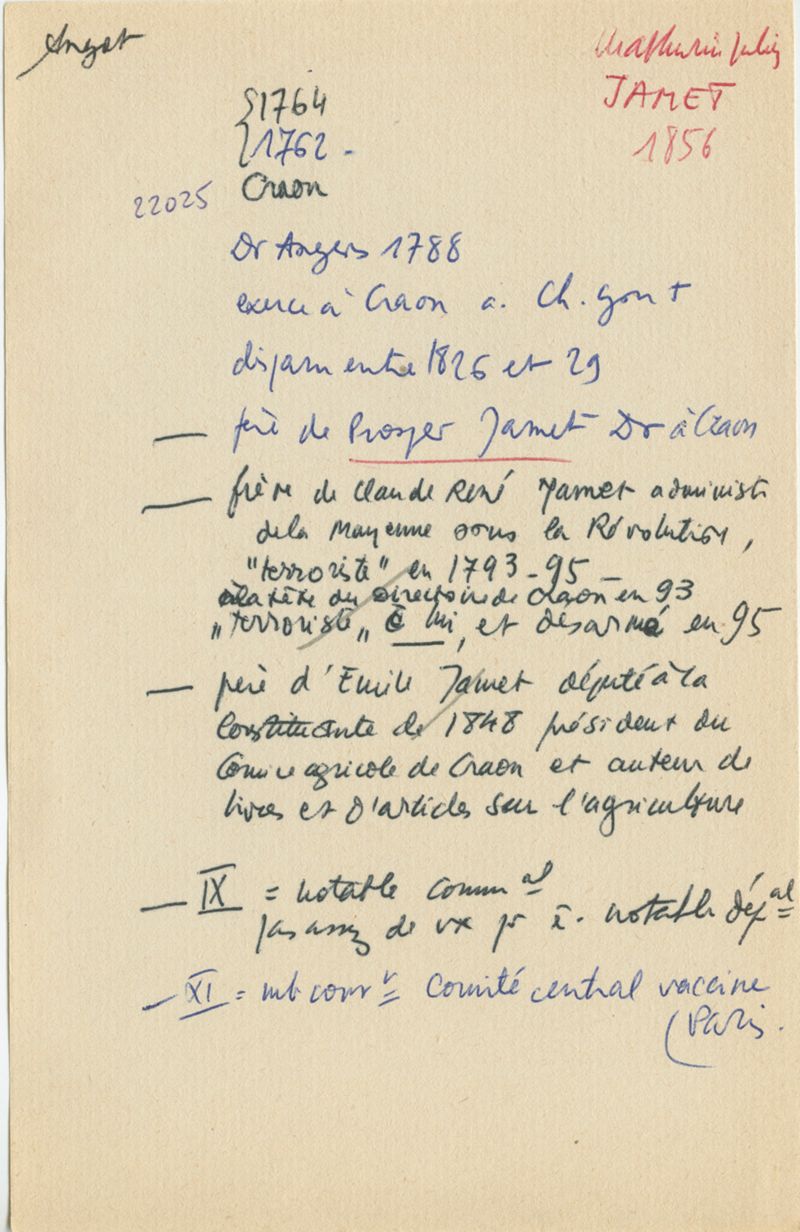 Angot
Mathurin Julien
JAMET
1856
{1764
{1762 -
22025 Craon
Dr Angers 1788
exerce à Craon a. Ch. Gont
disparu entre 1826 et 29
— père de Prosper Jamet Dr à Craon
— frère de Claude René Jamet administr
de la Mayenne sous la Révolution,
"terroriste" en 1793-95 —
à la tête du directoire de Craon en 93
"terroriste" ē lui, et désarmé en 95
— père d'Emile Jamet député à la
Constituante de 1848 président du
Comice agricole de Craon et auteur de
livres et d'articles sur l'agriculture
— IX = notable comm al
pas assez de vx pr ē. notable dép al
— XI = mb corr t Comité central vaccine
(Paris.